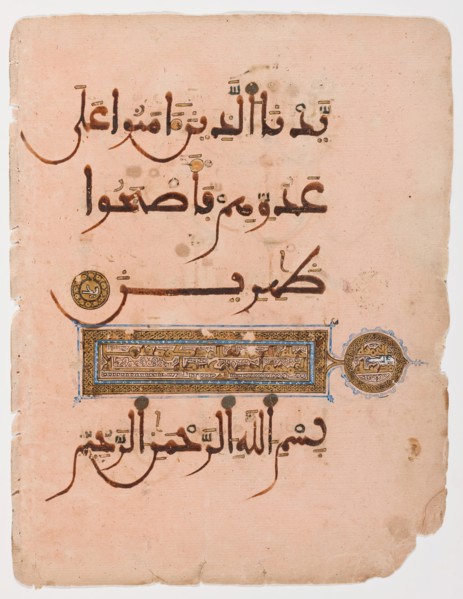 يَّدْنَا الَّذِينَ ءَامَنُوا عَلَى
عَدُوِّهِمْ فَأَصْبَحُوا
ظَٰهِرِينَ
بِسْمِ اللَّهِ الرَّحْمَٰنِ الرَّحِيمِ